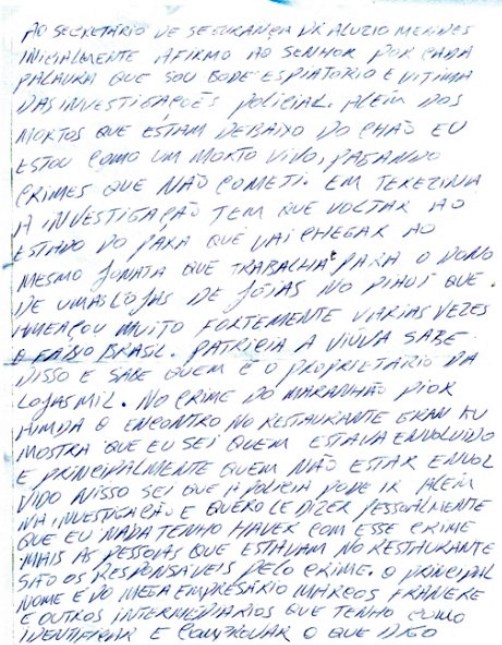 AO SECRETÁRIO DE SEGURANÇA DR ALUZIO MENDES
INICIALMENTE AFIRMO AO SENHOR POR CADA
PALAVRA QUE SOU BODE ESPIATORIO E VITIMA
DAS INVESTIGAÇÕES POLICIAL. ALÉM DOS
MORTOS QUE ESTAM DEBAIXO DO CHÃO EU
ESTOU COMO UM MORTO VIVO, PAGANDO
CRIMES QUE NÃO COMETI. EM TEREZINA
A INVESTIGAÇÃO TEM QUE VOLTAR AO
ESTADO DO PÁRA QUE VAI CHEGAR AO
MESMO JONATA QUE TRABALHA PARA O DONO
DE UMAS LOJAS DE JÓIAS NO PIAUÍ QUE
AMEAÇOU MUITO FORTEMENTE VIARIAS VEZES
O FÁBIO BRASIL. PATRICIA A VIÚVA SABE
DISSO E SABE QUEM É O PROPRIETÁRIO DA
LOJASMIL. NO CRIME DO MARANHÃO PIOR
AINDA O ENCONTRO NO RESTAURANTE GRAN KU
MOSTRA QUE EU SEI QUEM ESTAVA ENVOLVIDO
E PRINCIPALMENTE QUEM NÃO ESTAR ENVOL
VIDO NISSO SEI QUE A POLICIA PODE IR ALÉM
NA INVESTIGAÇÃO E QUERO LE DIZER PESSOALMENTE
QUE EU NADA TENHO HAVER COM ESSE CRIME
MAIS AS PESSOAS QUE ESTAVAM NO RESTAURANTE
SÃO OS RESPONSÁVEIS PELO CRIME. O PRINCIPAL
NOME E DO MEGA EMPRESÁRIO MARCOS
E OUTROS INTERMEDIARIOS QUE TENHO COMO
IDENTIFICAR E COMPROVAR O QUE DIGO